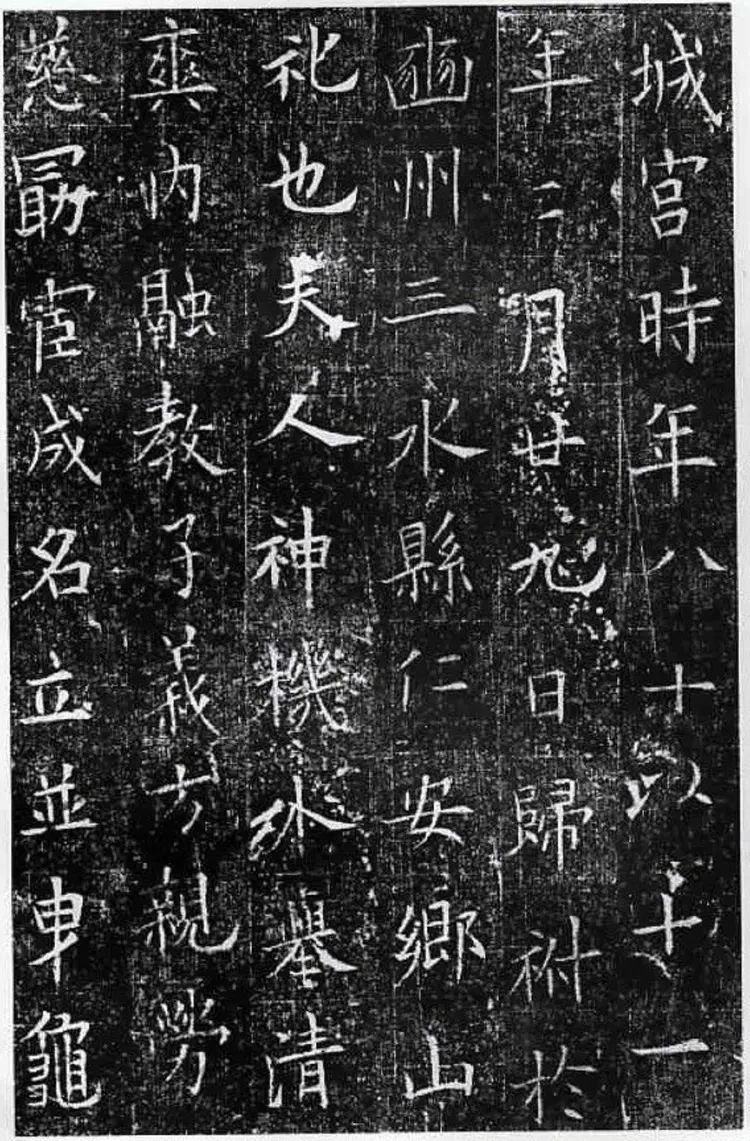 城宫時年八十以十一
年二月廿九日歸祔於
豳州三水縣仁安鄉山
礼也夫人神機外舉清
爽内融教子義方親勞
慈勗宦成名立並申龜